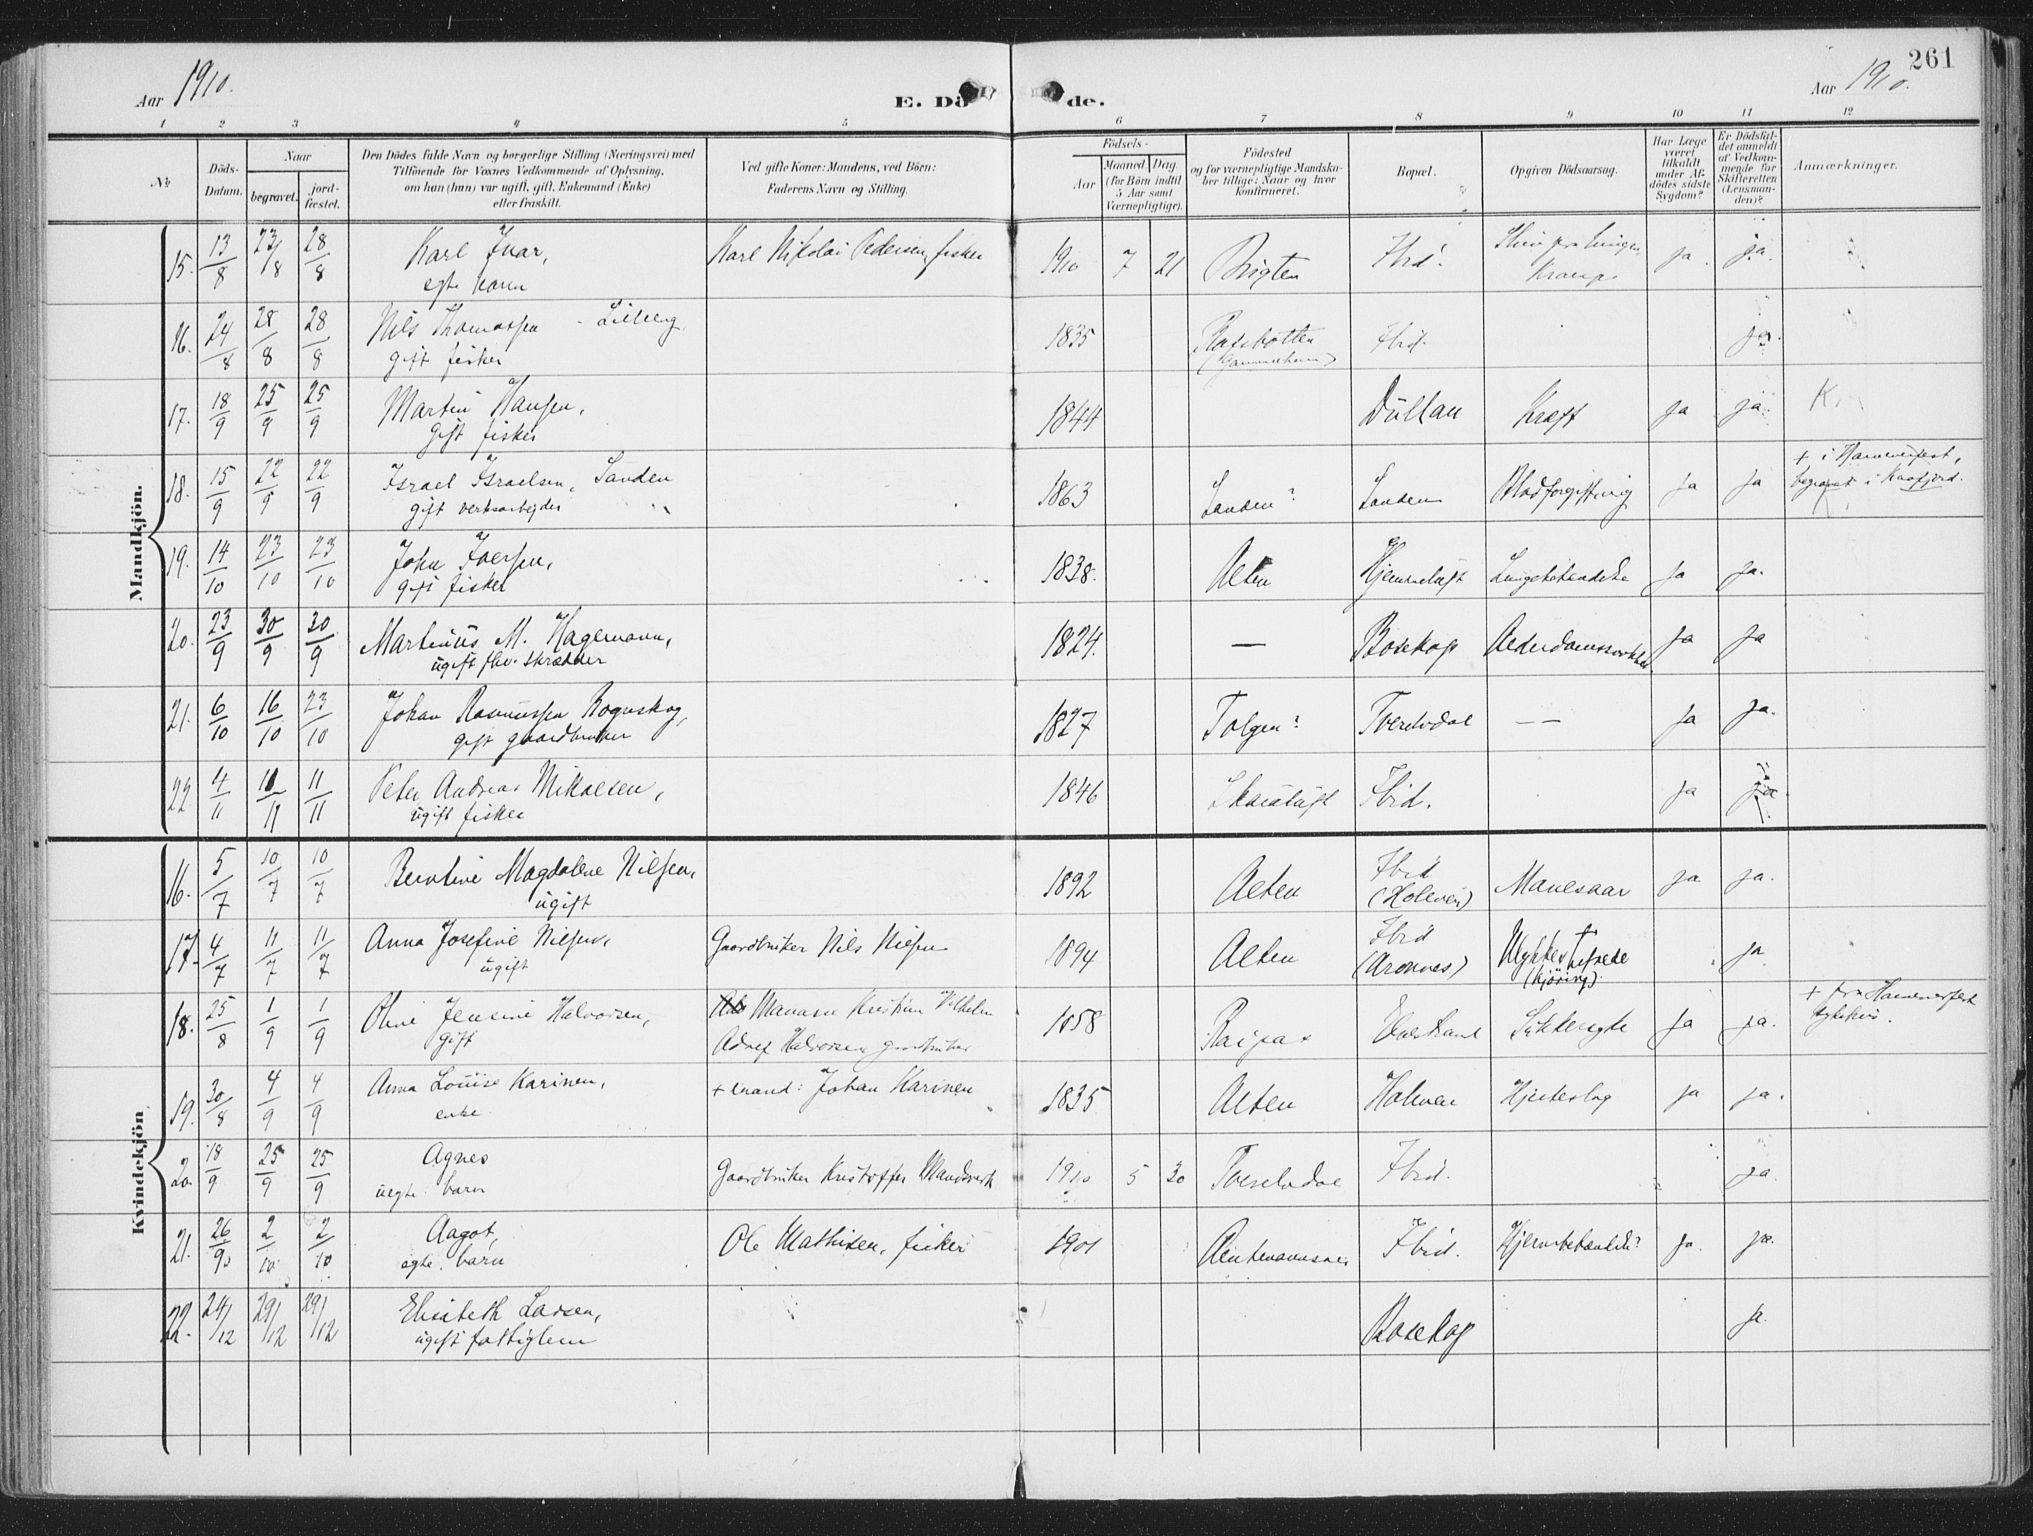 261
Aar 1910.
E. Dö
de.
Aar 1910.
1 2 3 4 5 6 7 8 9 10 11 12
№
Döds-
Datum.
Naar
begravet.
jord-
fæstet.
Den Dödes fulde Navn og borgerlige Stilling (Næringsvei) med
Tilföiende for Voxnes Vedkommende af Oplysning,
om han (hun) var ugift, gift, Enkemand (Enke)
eller fraskilt.
Ved gifte Koner: Mandens, ved Börn:
Faderens Navn og Stilling.
Födsels-
Aar
Maaned. Dag.
(for Börn indtil
5 Aar samt
Værnepligtige).
Födested
og for værnepligtige Mandska-
ber tillige: Naar og hvor
konfirmeret.
Bopæl.
Opgiven Dödsaarsag.
Har Læge
været
tilkaldt
under Af-
dödes sidste
Sygdom?
Er Dödsfal-
det anmeldt
af Vedkom-
mende for
Skifteretten
(Lensman-
den)?
Anmærkninger.
Mandkjön.
15. 13/8 23/8 28/8 Karl Ivar, Karl Nikolai Pedersen, fisker 1910 7 21 Ibid. ja. ja.
egte barn
16. 24/8 28/8 28/8 Nils Thomassen 1835 Rafsbotten Ibid. ja.
gift fisker
17. 18/9 25/9 25/9 Martin Hansen, 1844 Kræft ja ja. K
gift fisker
18. 15/9 22/9 22/9 Israel Israelsen, Sanden 1863 Sanden? Sanden Blodforgiftning ja ja + i Hammerfest,
gift verksarbejder begravet i Kaafjord.
19. 14/10 23/10 23/10 John Iversen, 1838. Alten Hjemmeluft Lungebetændelse ja ja.
gift fisker
20. 23/9 30/9 30/9 Martinus M. Hagemann, 1824. — Bosekop ja ja
ugift fhv. skrædder
21. 6/10 16/10 23/10 Johan Rasmussen Rognskog, 1827 Tolgen? Tverelvdal — ja ja.
gift gaardbruker
22 4/11 11/11 11/11 Peter Andreas Mikalsen, 1846 Skaialuft Ibid. ja ja
ugift fisker
Kvindekjön
16. 5/7 10/7 10/7 Berntine Magdalene Nilsen, 1892 Alten Ibid Mavesaar ja ja.
ugift
17. 4/7 11/7 11/7 Anna Josefine Nilsen, Gaardbruker Nils Nilsen 1894 Alten Ibid ja
ugift (Aronnes) (kjöring).
18. 25/8 1/9 1/9 Oline Jensine Halvorsen, Kristian Vilhelm 1858 Raipas Elvestrand Sukkersyke ja ja. + paa Hammerfest
gift Adolf Halvorsen gaardbruker sykehus.
19. 30/8 4/9 4/9 Anna Louise Karinen, + mand: Johan Karinen 1835 Alten Hjerteslag ja ja.
enke.
20. 18/9 25/9 25/9 Agnes Gaardbruker Kristoffer 1910 5 30 Tverelvdal Ibid. ja.
uegte barn
21. 26/9 2/10 2/10 Aagot, Ole Mathisen, fisker 1901 Ibid. ja. ja.
egte barn
22. 24/12 29/12 29/12 Elisabeth Larsen, Bosekop ja.
ugift fattiglem